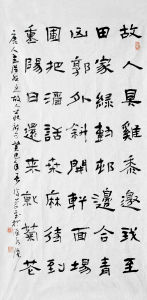 故人具雞黍邀我至
田家綠樹邨邊合青
山郭外斜開軒面場
圃把酒話桑麻待到
重陽日還來就菊花
唐人孟浩然過故人莊 癸巳年